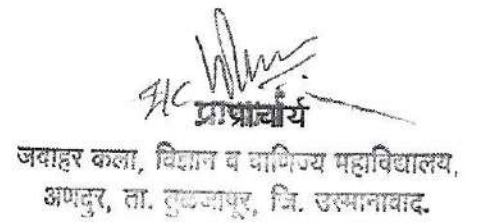 प्राचार्य
जवाहर कला, विज्ञान व वाणिज्य महाविद्यालय,
अणदुर, ता. तुळजापूर, जि. उस्मानावाद.